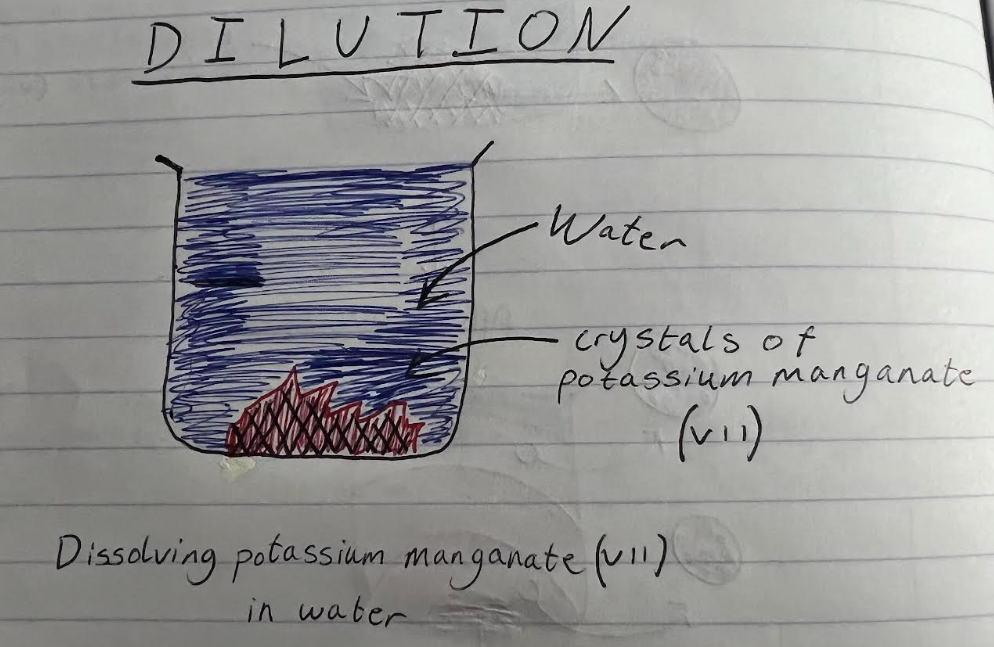 DILUTION
Water
crystals of
potassium manganate
(VII)
Dissolving potassium manganate (VII)
in water